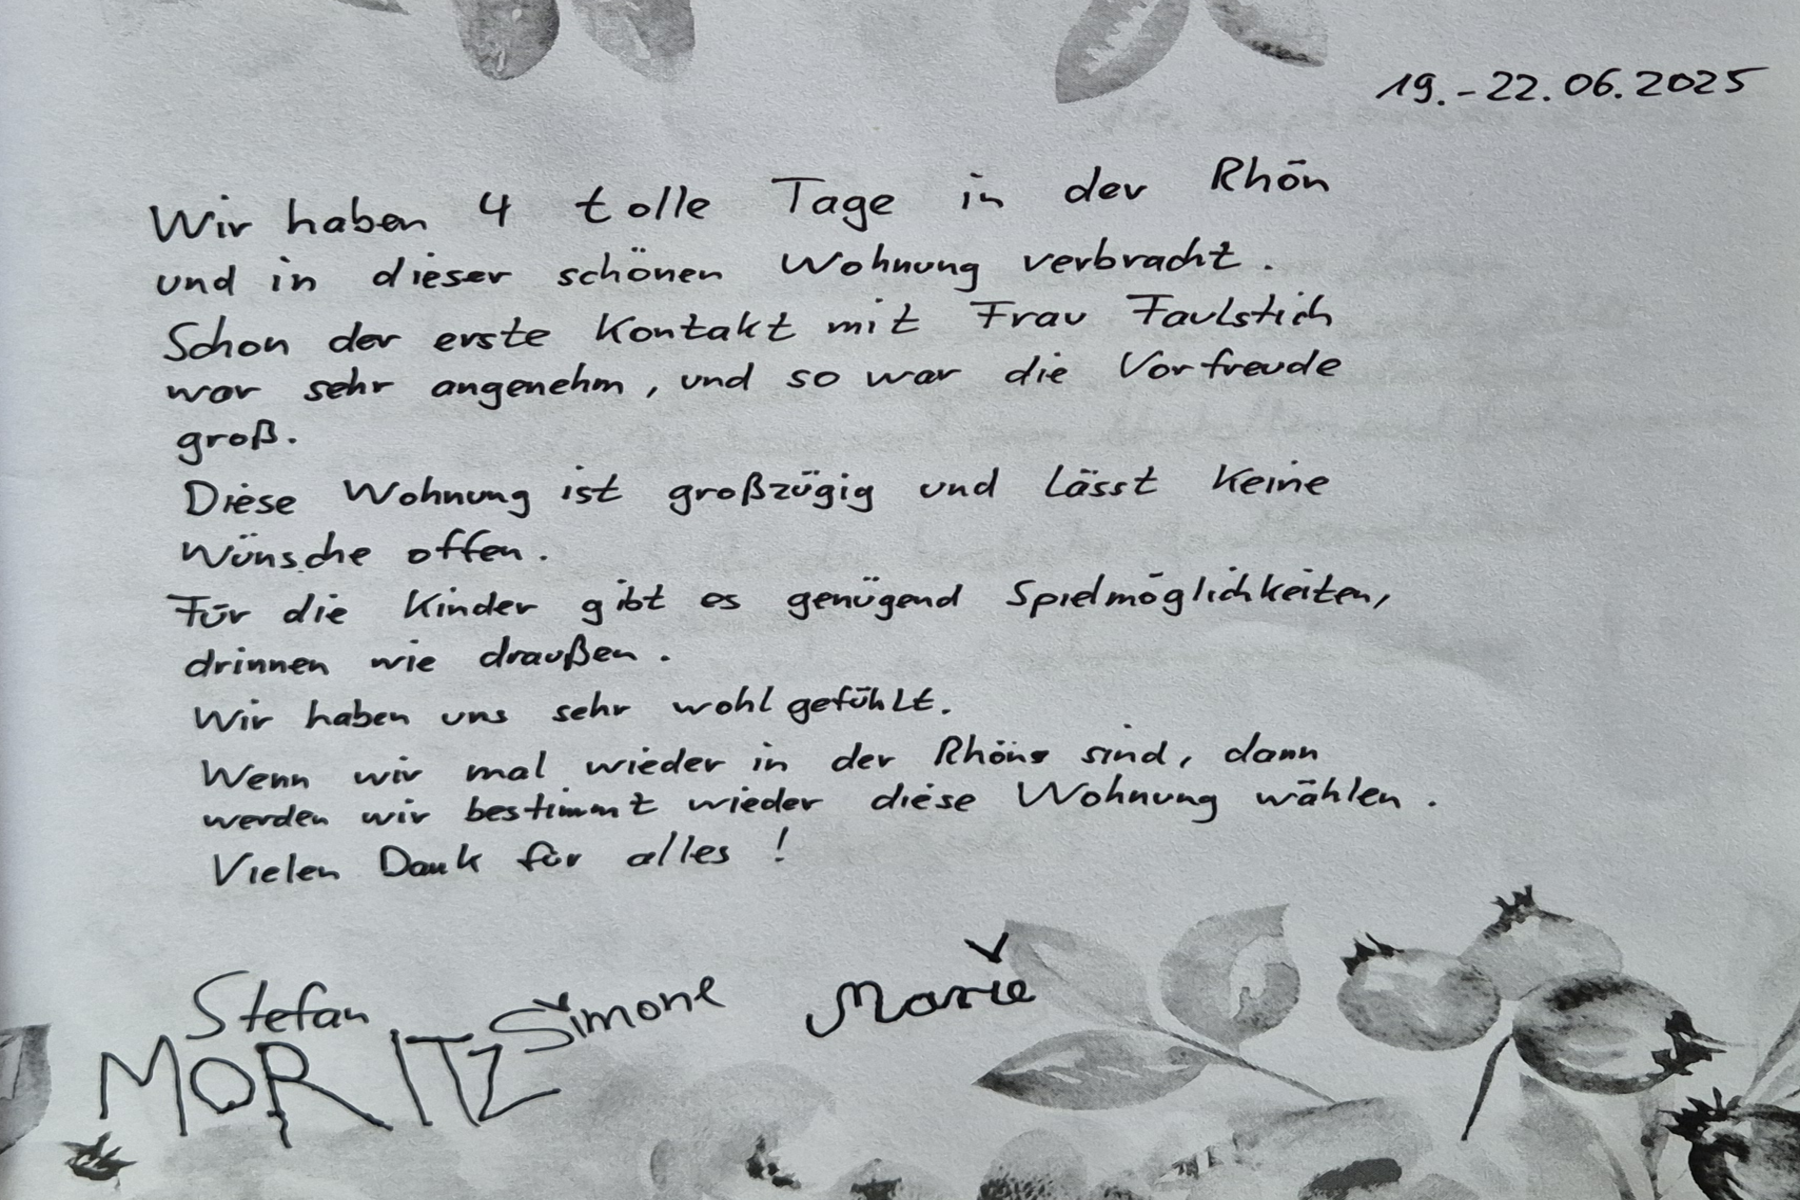 19.-22.06.2025
Wir haben 4 tolle Tage in der Rhön
und in dieser schönen Wohnung verbracht.
Schon der erste Kontakt mit Frau Faulstich
war sehr angenehm, und so war die Vorfreude
groß.
Diese Wohnung ist großzügig und lässt keine
Wünsche offen.
Für die Kinder gibt es genügend Spielmöglichkeiten,
drinnen wie draußen.
Wir haben uns sehr wohl gefühlt.
Wenn wir mal wieder in der Rhön sind, dann
werden wir bestimmt wieder diese Wohnung wählen.
Vielen Dank für alles!
Stefan Simone Marie
MORITZ